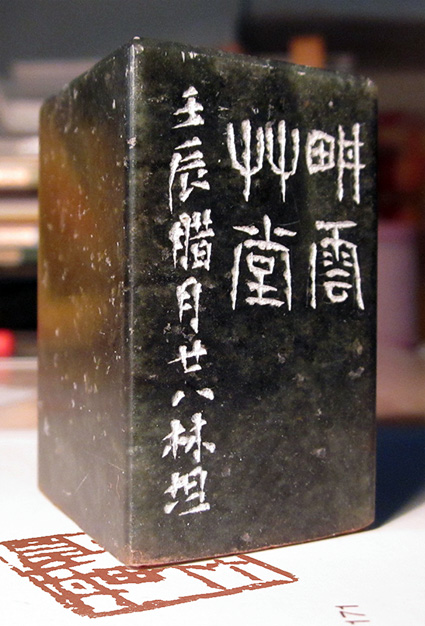 畊雲
艸堂
壬辰腊月廿八林坦